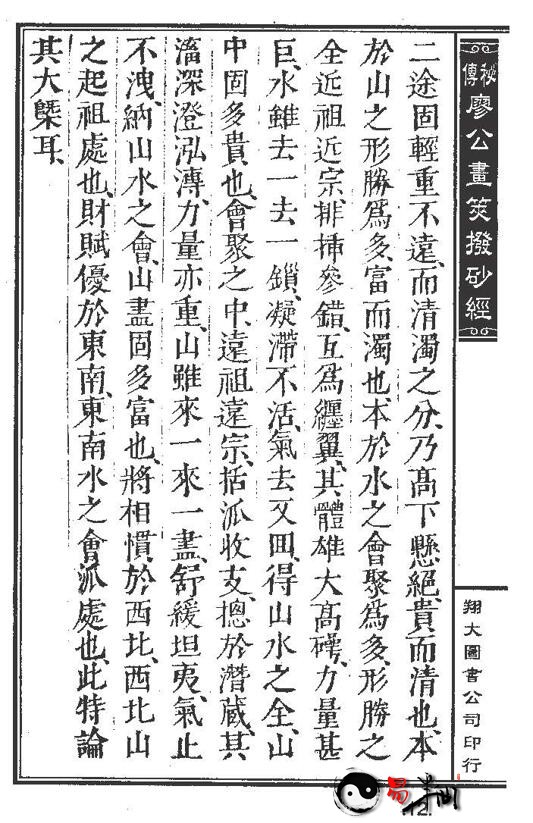 秘傳廖公畫筴撥砂經
二途固輕重不遠、而清濁之分、乃高下懸絕、貴而清也、本
於山之形勝為多、富而濁也、本於水之會聚為多、形勝之
全、近祖近宗、排揷參錯、互為纏翼、其體雄大高磚、力量甚
巨、水雖去一去一鎖、凝滯不活、氣去又囬、得山水之全、山
中固多貴也、會聚之中、遠祖遠宗、括派收支、摠於潛藏、其
滀深澄泓漙、力量亦重、山雖來一來一盡、舒緩坦夷、氣止
不洩、納山水之會、山盡固多富也、將相慣於西北、西北山
之起祖處也、財賦優於東南、東南水之會派處也、此特論
其大槩耳、
翔大圖書公司印行
12